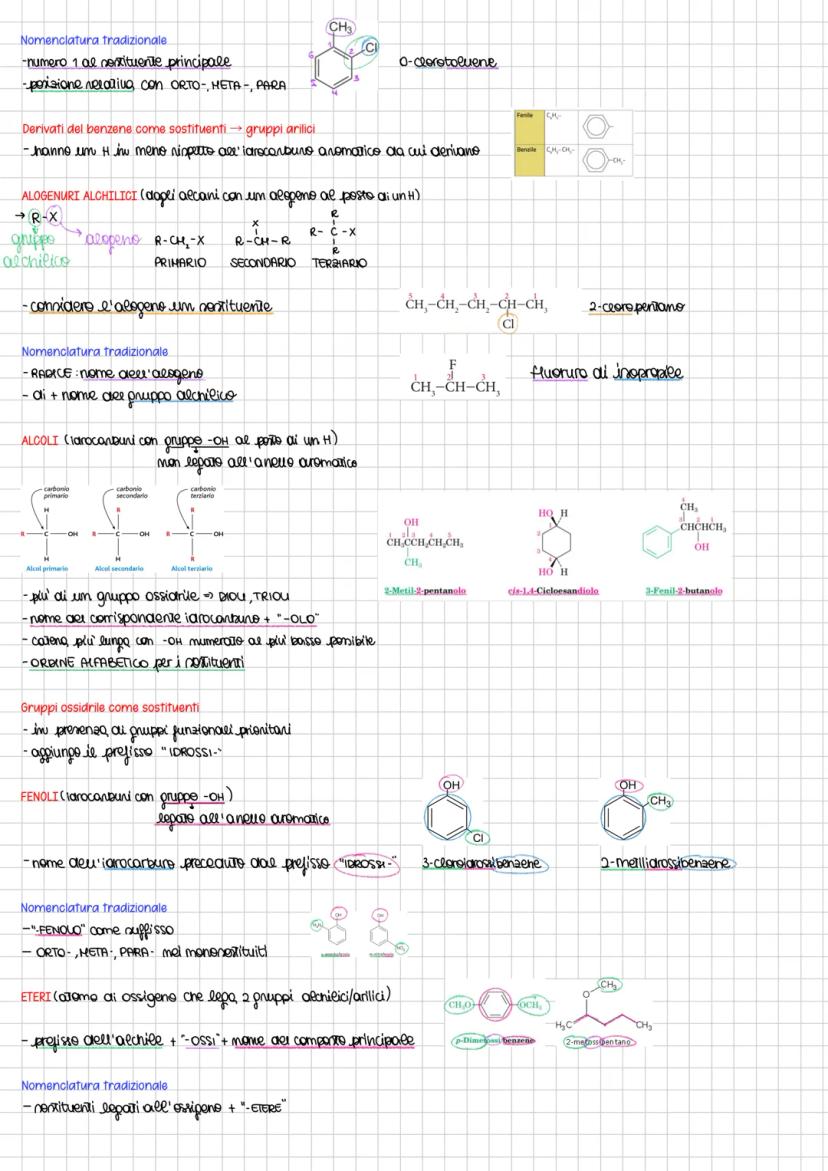 Nomenclatura tradizionale
-numero 1 al sostituente principale
-posizione relativa con ORTO-, META-, PARA
CH₃
Cl
1
2
3
4
5
6
O-clorotoluene
Derivati del benzene come sostituenti → gruppi arilici
-hanno un H in meno rispetto all'idrocarburo aromatico da cui derivano
Fenile C₆H₅-
Benzile C₆H₅-CH₂- CH₂-
ALOGENURI ALCHILICI (dagli alcani con un alogeno al posto di un H)
→ R-X
gruppo alchilico
alogeno
R-CH₂-X
X
R-CH-R
R
R-C-X
R
PRIMARIO SECONDARIO TERZIARIO
-considero l'alogeno un sostituente
5 4 3 2 1
CH₃-CH₂-CH₂-CH-CH₃
Cl
2-cloropentano
Nomenclatura tradizionale
-RADICE: nome dell'alogeno
- di + nome del gruppo alchilico
F
1 2 3
CH₃-CH-CH₃
fluoruro di isopropile
ALCOLI (idrocarburi con gruppo -OH al posto di un H)
non legato all'anello aromatico
carbonio primario
H
R-C-OH
H
Alcol primario
carbonio secondario
R
R-C-OH
H
Alcol secondario
carbonio terziario
R
R-C-OH
R
Alcol terziario
OH
1 2 3 4 5
CH₃CCH₂CH₂CH₃
CH₃
2-Metil-2-pentanolo
HO H
1
2
3
4
HO H
cis-1,4-Cicloesandiolo
4
CH₃
3 2 1
CHCHCH₃
OH
3-Fenil-2-butanolo
-più di un gruppo ossidrile => DIOLI, TRIOLI
-nome del corrispondente idrocarburo + "-OLO"
- catena più lunga con -OH numerato al più basso possibile
-ORDINE ALFABETICO per i sostituenti
Gruppi ossidrile come sostituenti
- in presenza di gruppi funzionali prioritari
- aggiungo il prefisso "IDROSSI-"
FENOLI (idrocarburi con gruppo -OH)
legato all'anello aromatico
OH
Cl
OH
CH₃
-nome dell'idrocarburo preceduto dal prefisso "IDROSSI-"
3-cloroidrossibenzene
2-metilidrossibenzene
Nomenclatura tradizionale
-"-FENOLO" come suffisso
- ORTO-, META-, PARA- nei monosostituiti
OH
OH
ETERI (atomo di ossigeno che lega 2 gruppi alchilici/arilici)
- prefisso dell'alchile + "-OSSI" + nome del composto principale
CH₃O OCH₃
p-Dimetossibenzene
CH₃
O
H₃C CH₃
2-metossipentano
Nomenclatura tradizionale
-sostituenti legati all'ossigeno + "-ETERE"